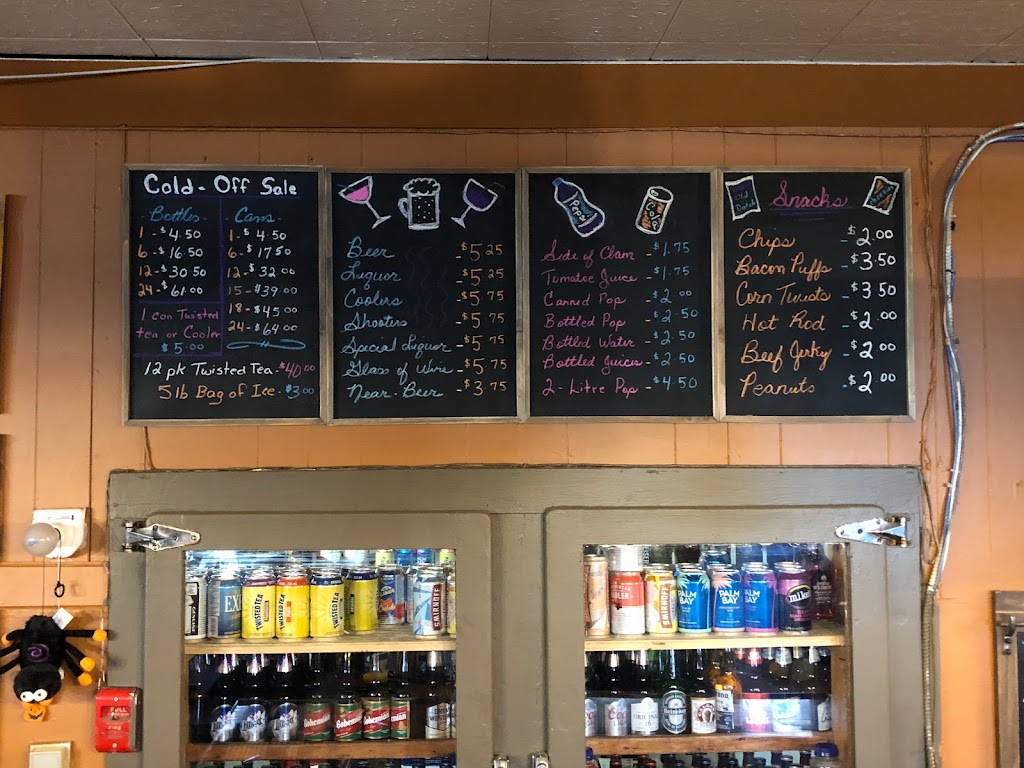 Cold-Off Sale
Bottles
1 - $4.50
6 - $16.50
12 - $30.50
24 - $61.00
Cans
1 - $4.50
6 - $17.50
12 - $32.00
15 - $39.00
18 - $45.00
24 - $64.00
1 can Twisted
tea or Cooler
$5.00
12 pk Twisted Tea - $40.00
5lb Bag of Ice - $3.00
Beer - $5.25
Liquor - $5.25
Coolers - $5.75
Shooters - $5.75
Special Liquor - $5.75
Glass of Wine - $5.75
Near-Beer - $3.75
Pepsi
Side of Clam - $1.75
Tomatoe Juice - $1.75
Canned Pop - $2.00
Bottled Pop - $2.50
Bottled Water - $2.50
Bottled Juices - $2.50
2-Litre Pop - $4.50
Old Dutch
Snacks
Chips - $2.00
Bacon Puffs - $3.50
Corn Twists - $3.50
Hot Rod - $2.00
Beef Jerky - $2.00
Peanuts - $2.00
TWISTED TEA
TWISTED TEA
SMIRNOFF
SMIRNOFF
PALM BAY
PALM BAY
mike's
Bohemian
Bohemian
Bohemian
Heineken
PULL